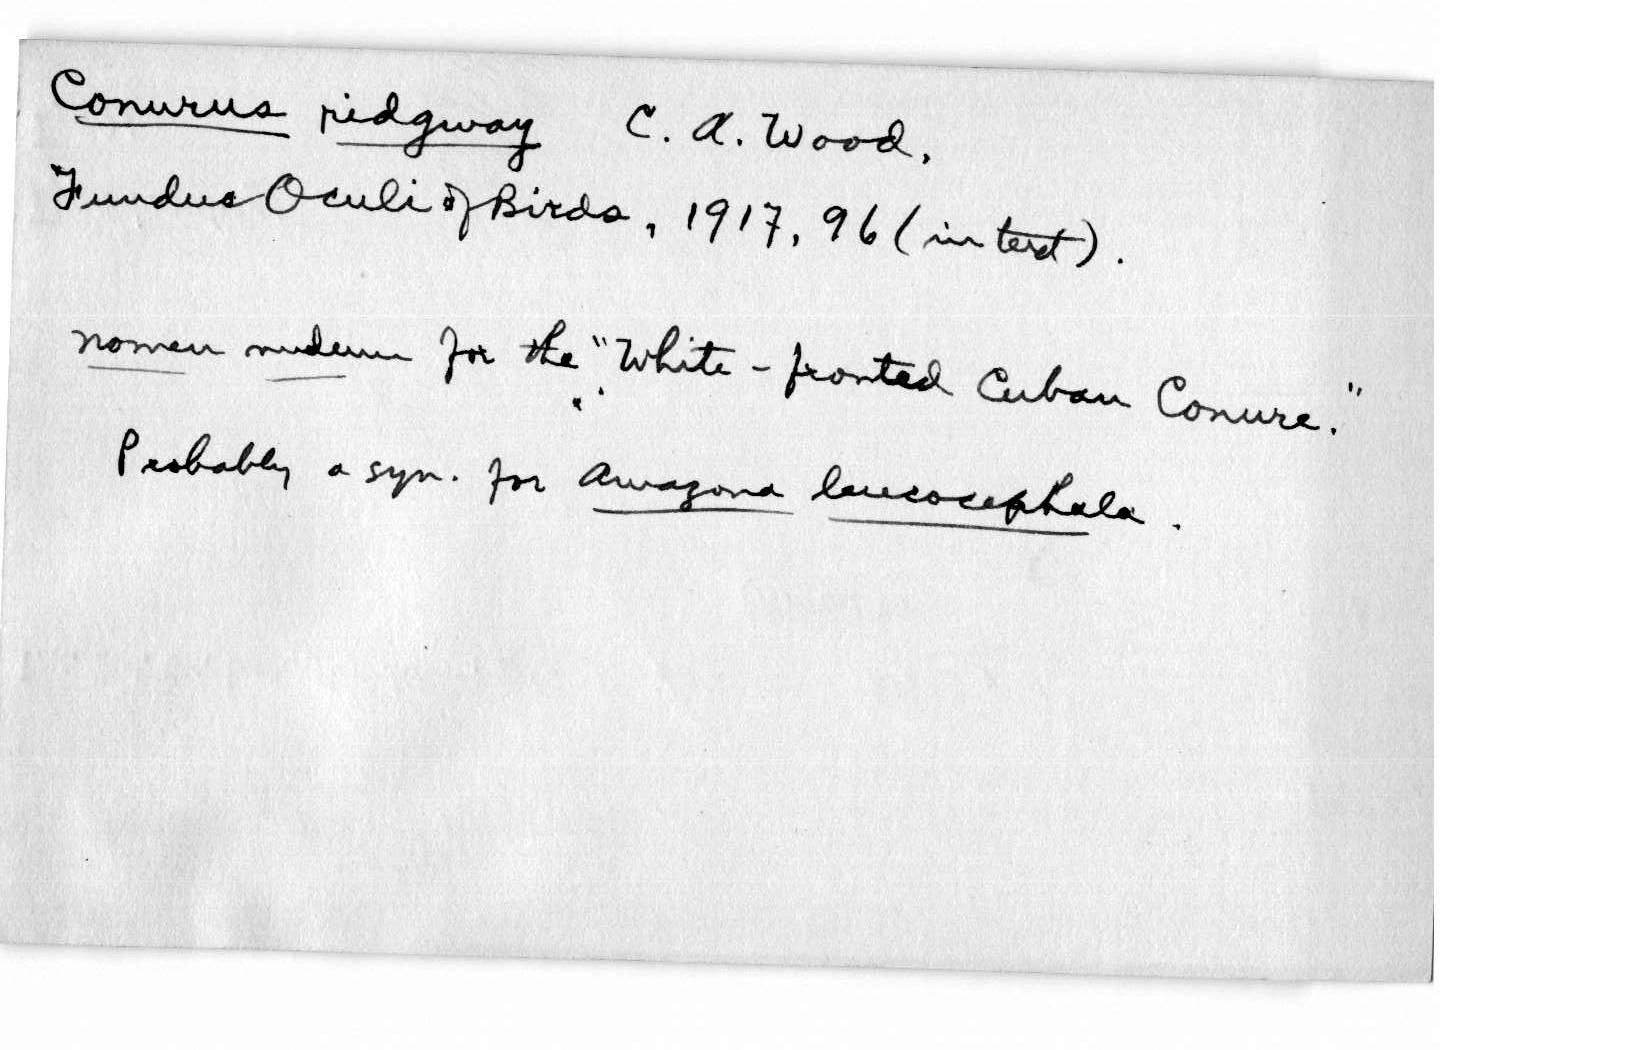 Conurus ridgway C. A. Wood,
Fundus Oculi of Birds, 1917, 96 (in text).
nomen nudum for the "White-fronted Cuban Conure."
Probably a syn. for Amazona leucocephala.